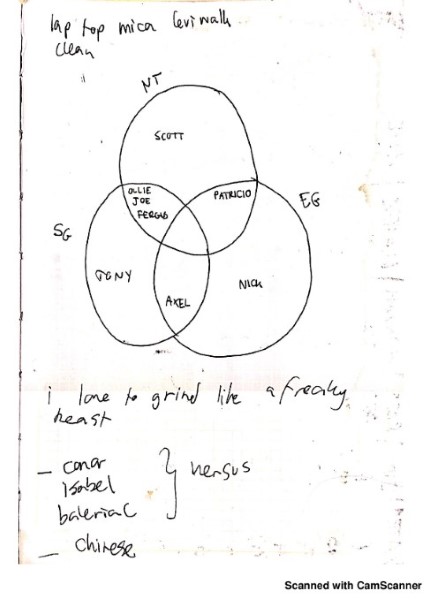 lap top mica levi walk
clean
NT
SCOTT
OLLIE
JOE
FERGUS
PATRICIO
EG
SG
TONY
NICK
AXEL
i love to grind like a freaky
beast
conor
isabel
versus
Chinese
Scanned with CamScanner